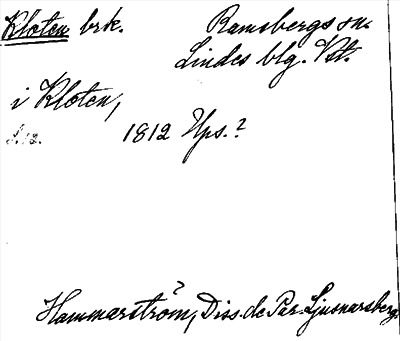 Kloten brk. Ramsbergs sn.
Lindes blg. Vstm.
i Kloten,
1812 Ups.?
Hammarström?, Diss. de Par. Ljusnarsberg.